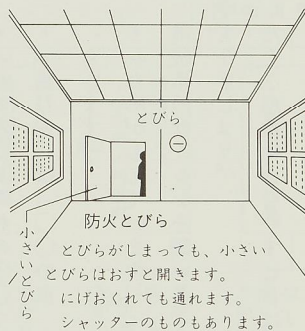 とびら
防火とびら
小さいとびら
とびらがしまっても、小さい
とびらはおすと開きます。
にげおくれても通れます。
シャッターのものもあります。